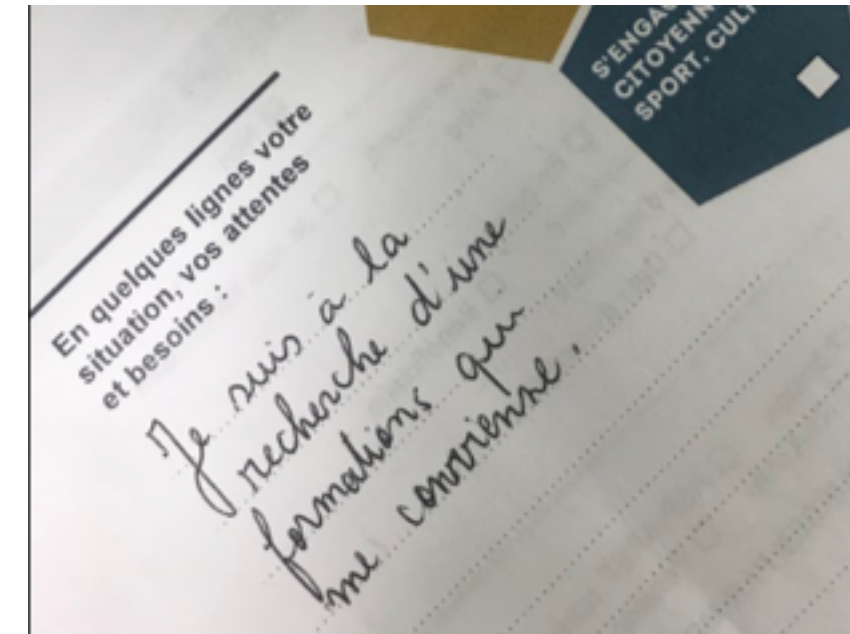 S'ENGAG
CITOYENN
SPORT, CULT
En quelques lignes votre
situation, vos attentes
et besoins :
Je suis à la
recherche d'une
formations qui
me convienne.